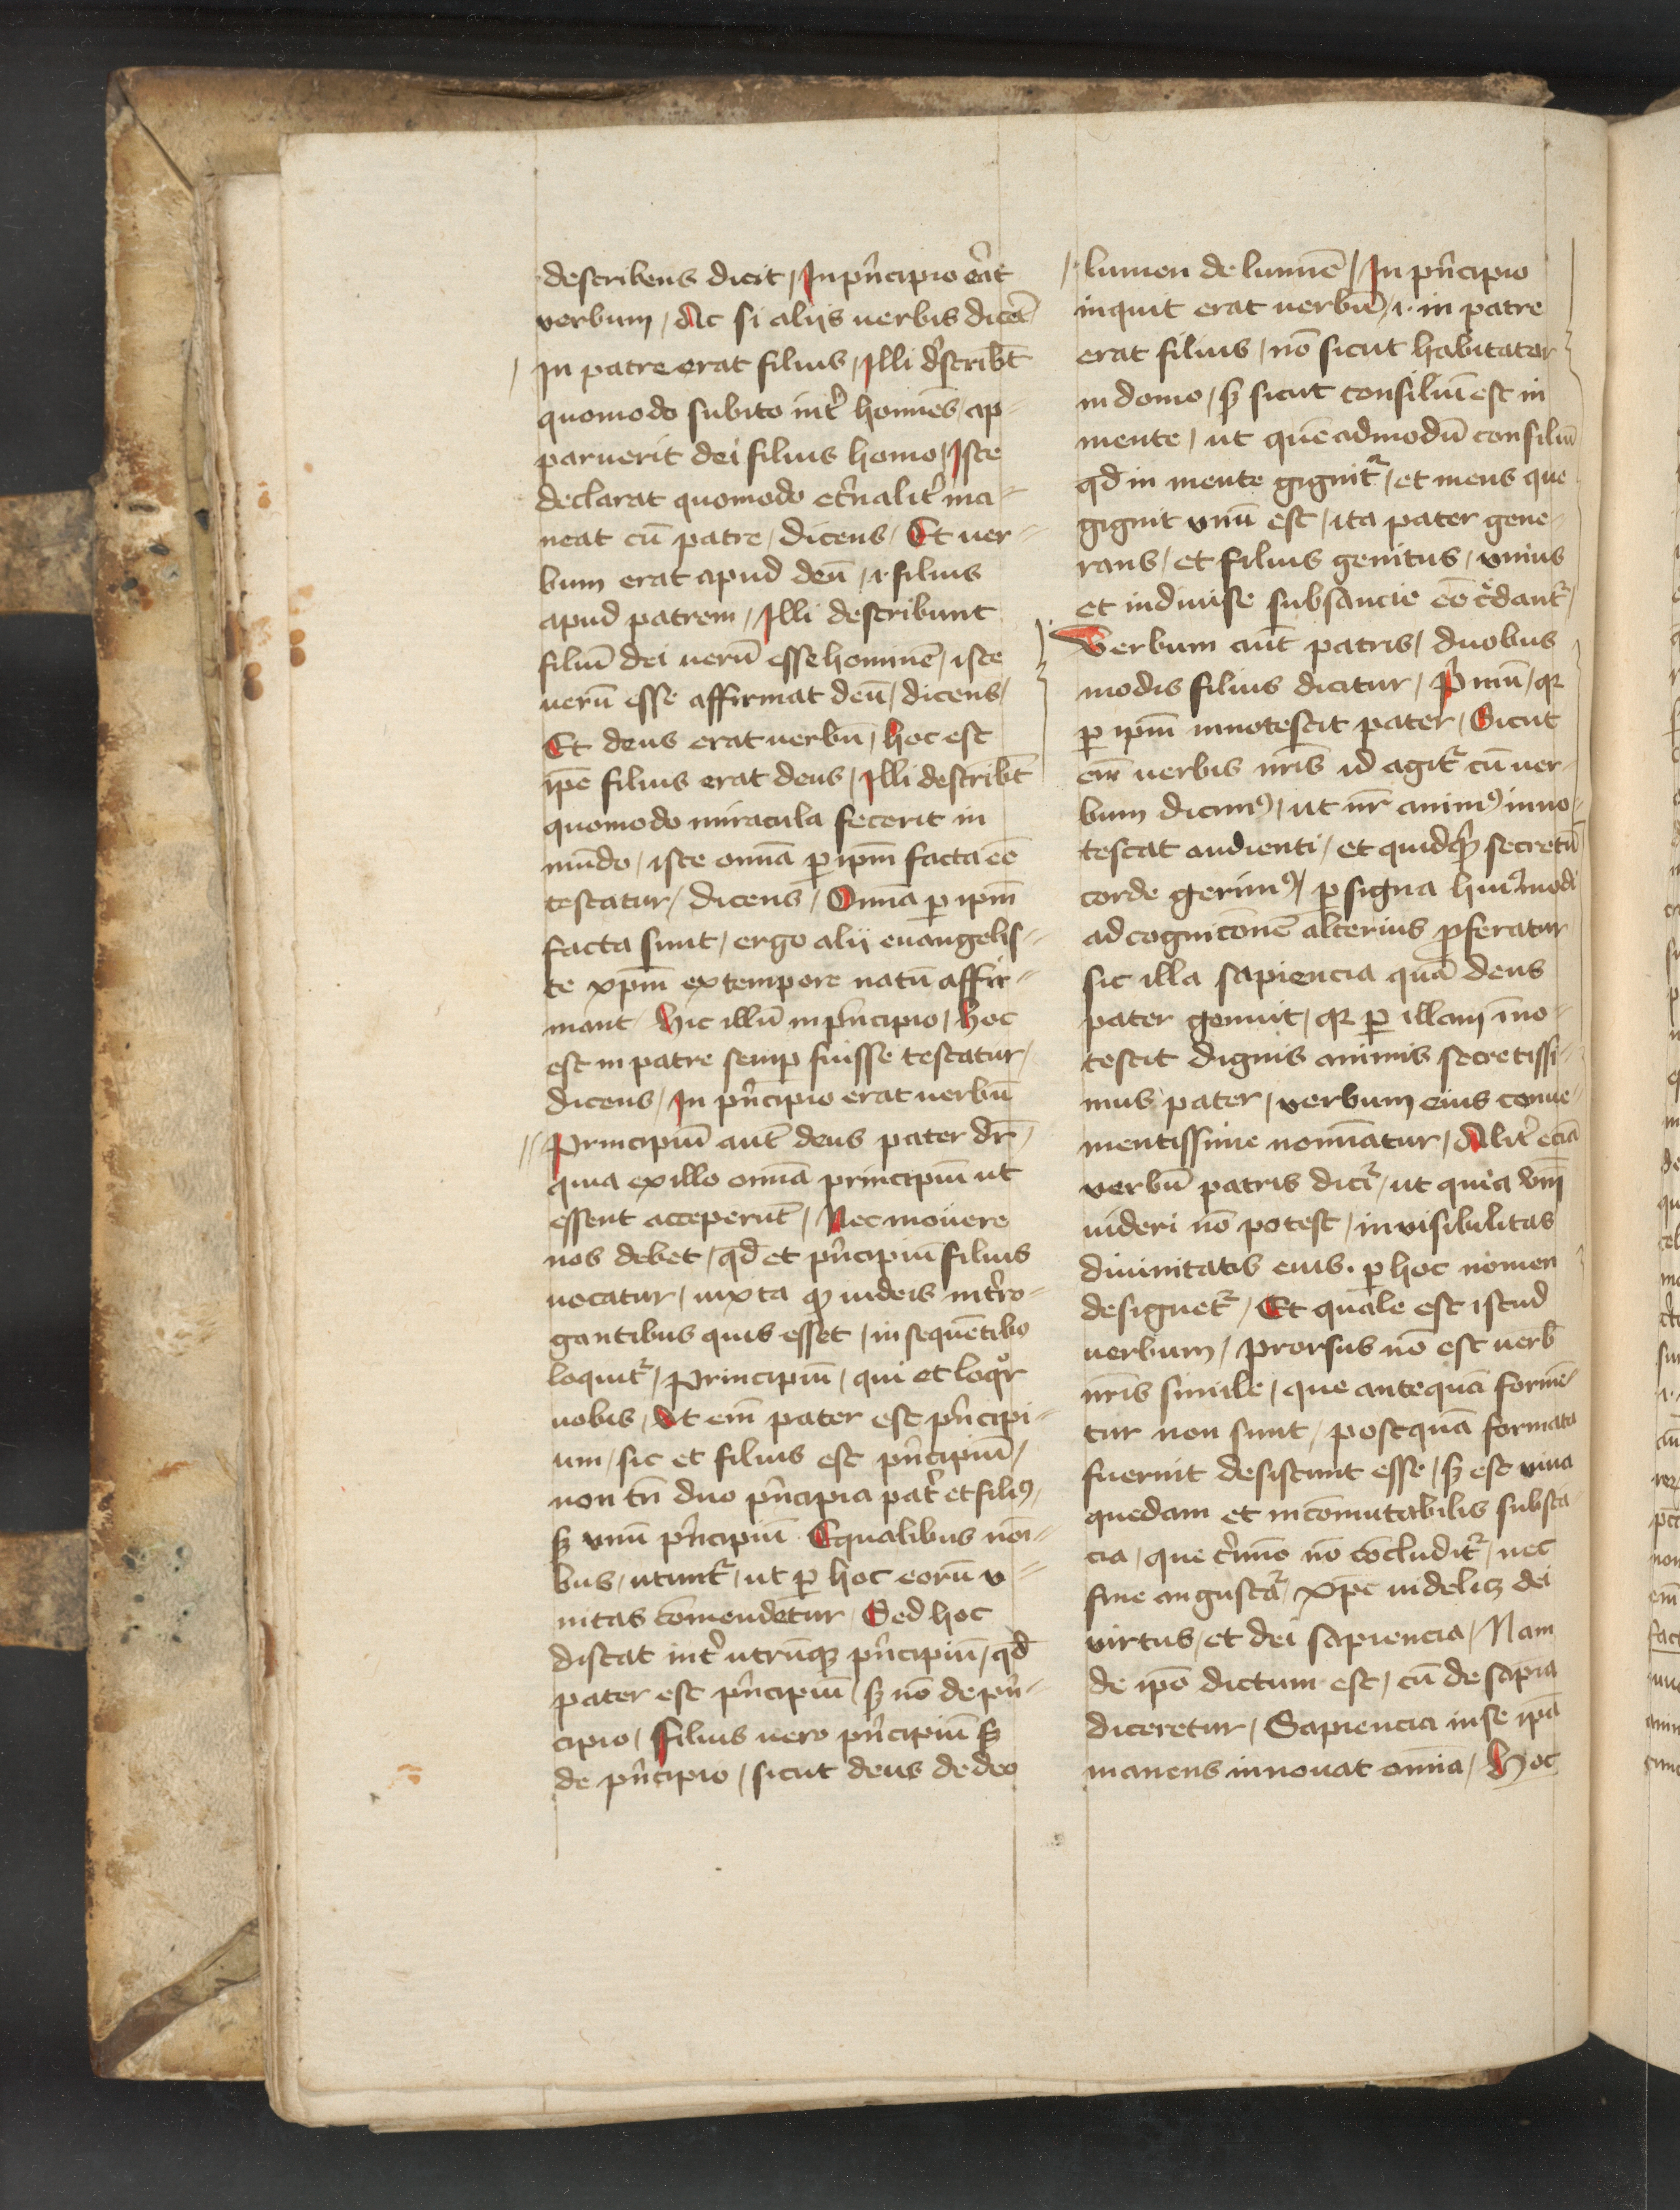 describens dicit / In pͥncipio erat
verbum / Ac si aliis uerbis dicet̄
In patre erat filius / Illi dͤscribūt
quomodo subito int̓ homīes / ap⸗
paruerit dei filius homo / Iste
declarat quomodo et̓nalit̓ ma⸗
neat cū patre / dicens / Et uer⸗
bum erat apud deū / .i. filius
apud patrem / Illi describunt
filiū dei uerū esse hominē / iste
uerū esse affirmat deū / dicens /
Et deus erat uerbū / hoc est
ip̄e filius erat deus / Illi describūt
quomodo miracula fecerit in
mūdo / iste om̄ia ꝑ ip̄m facta eē
testatur / dicens / Om̄ia ꝑ ip̄m
facta sunt / ergo alii euangelis⸗
te xp̄m ex tempore natū affir⸗
mant / hic illū in pͥncipio / hoc
est in patre semꝑ fuisse testatur /
dicens / In pͥncipio erat uerbū
Principiū aūt deus pater dr̄ /
quia ex illo om̄ia principiū ut
essent acceperūt / Nec mouere
nos debet / qd̄ et pͥncipiū filius
uocatur / iuxta ꝙ iudeis int̓ro⸗
gantibus quis esset / in sequētibꝰ
loquit᷑ / Principiū / qui et loqͦr
uobis / Ut em̄ pater est pͥncipi⸗
um / sic et filius est pͥncipiū /
non tn̄ duo pͥncipia pat̓ et filiꝰ /
sꝫ vnū pͥncipiū Equalibus noī⸗
bus / utunt᷑ / ut ꝑ hoc eorū v⸗
nitas cōmendetur / Sed hoc
distat int̓ utrūqꝫ pͥncipiū / qd̄
pater est pͥncipiū / sꝫ nō de pͥn⸗
cipio / filius uero pͥncipiū sꝫ
de pͥncipio / sicut deus de deo
lumen de lumīe / In pͥncipio
inquit erat uerbū / .i. in patre
erat filius / nō sicut habitator
in domo / sꝫ sicut consiliū est in
mente / ut quēadmodū consiliū
qd̄ in mente gignit᷑ / et mens que
gignit vnū est / ita pater gene⸗
rans / et filius genitus / vnius
et indiuise subsancie eē cͤdant᷑ /
Verbum aūt patris / duobus
modis filius dicitur / Pͥmū / qꝛ
ꝑ ip̄m innotescit pater / Sicut
em̄ uerbis nr̄is id agit᷑ cū uer⸗
bum dicimꝰ / ut nr̄ animꝰ inno⸗
tescat audienti / et quidqͥd secretū
corde gerimꝰ / ꝑ signa huiꝰmodi
ad cognicōnē alterius ꝓferatur
sic illa sapiencia quā deus
pater genuit / qꝛ ꝑ illam īno⸗
tescit dignis animis secretissi⸗
mus pater / verbum eius conue⸗
nientissime nomīatur / Alit̓ eciā
verbū patris dicit᷑ / ut quia
uideri nō potest / inuisibilitas
diuinitatis eius . ꝑ hoc nomen
designet᷑ / Et quale est istud
uerbum / prorsus nō est uerb̄
nr̄is simile / que antequā formē⸗
tur non sunt / postquā formata
fuerint desistunt esse / sꝫ est viua
quedam et incōmutabilis substā⸗
cia / que t̓mīo nō cōcludit᷑ / nec
fine angustat᷑ / xp̄c uidelicꝫ dei
virtus / et dei sapiencia / Nam
de ip̄o dictum est / cū de sapīa
diceretur / Sapiencia in se ip̄a
manens innouat omnia / Hoc